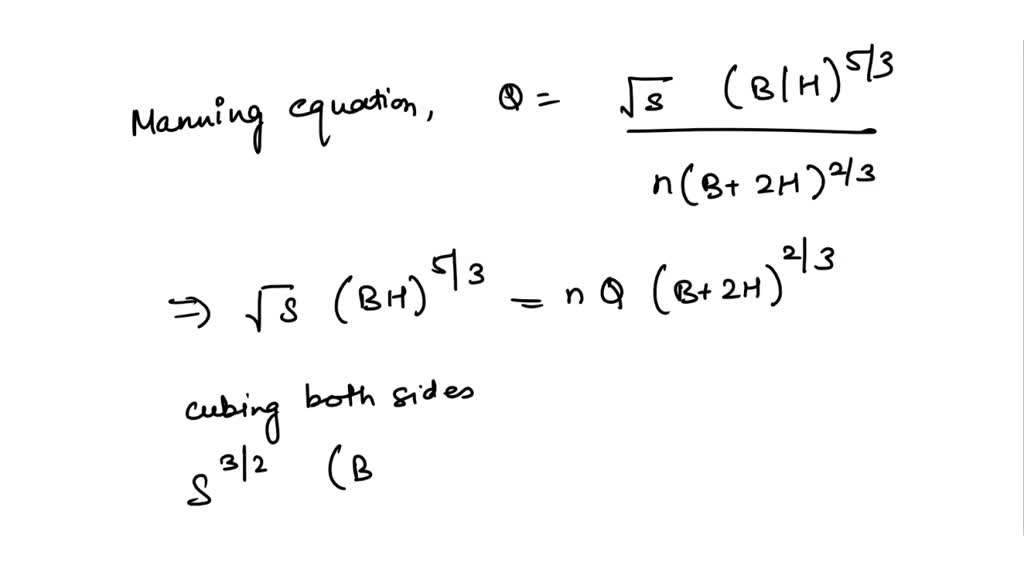 Manning equation, Q = √s (B|H)^5/3 / n(B+ 2H)^2/3
⇒ √s (BH)^5/3 = n Q (B+2H)^2/3
cubing both sides
s^3/2 (B